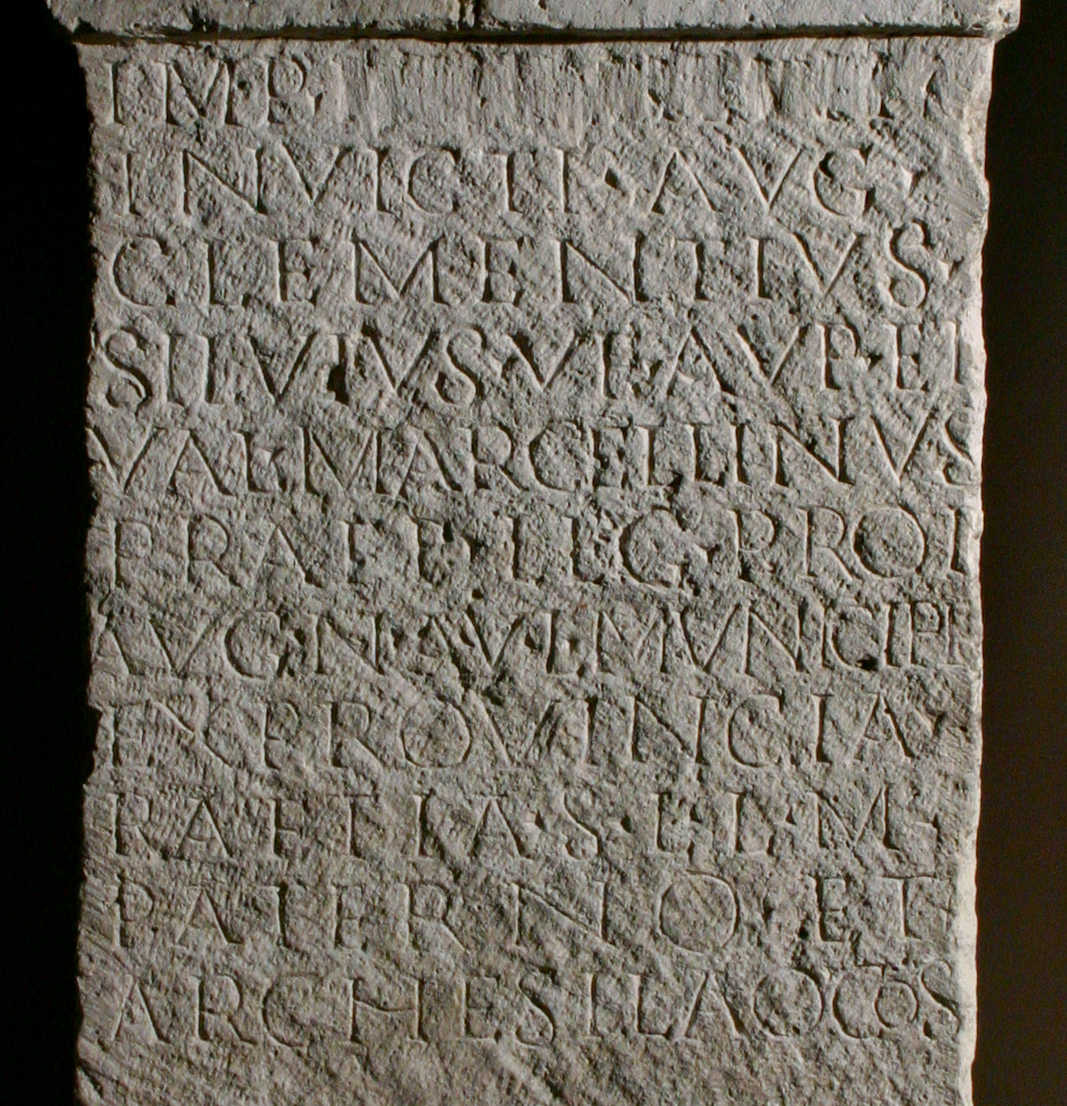 IMP
INVICTI · AVG ·
CLEMENTIVS ·
SILVIVS · V · E · A · V · P · ET
VAL · MARCELLINVS
PRAEF · LEG · PROT
AVG · N · A · V · L · MVNICIPE
EX PROVINCIA
RAETIA · S · L · L · M ·
PATERNO ET
ARCHESILAO COS